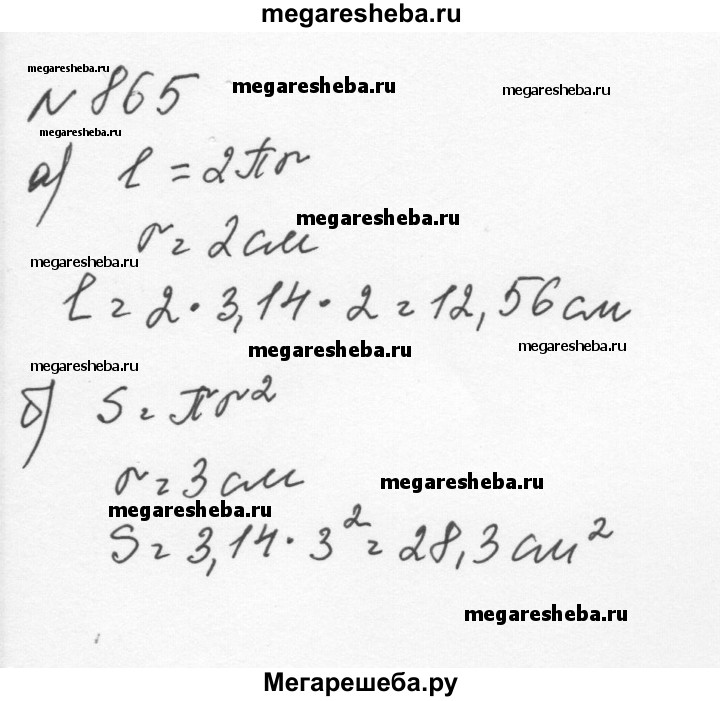 megaresheba.ru
megaresheba.ru
№ 865
megaresheba.ru
megaresheba.ru
megaresheba.ru
а) l = 2πr
megaresheba.ru
r = 2 см
megaresheba.ru
l = 2 · 3,14 · 2 = 12,56 см
megaresheba.ru
megaresheba.ru
megaresheba.ru
б) S = πr²
r = 3 см
megaresheba.ru
megaresheba.ru
S = 3,14 · 3² = 28,3 см²
megaresheba.ru
Мегарешеба.ру